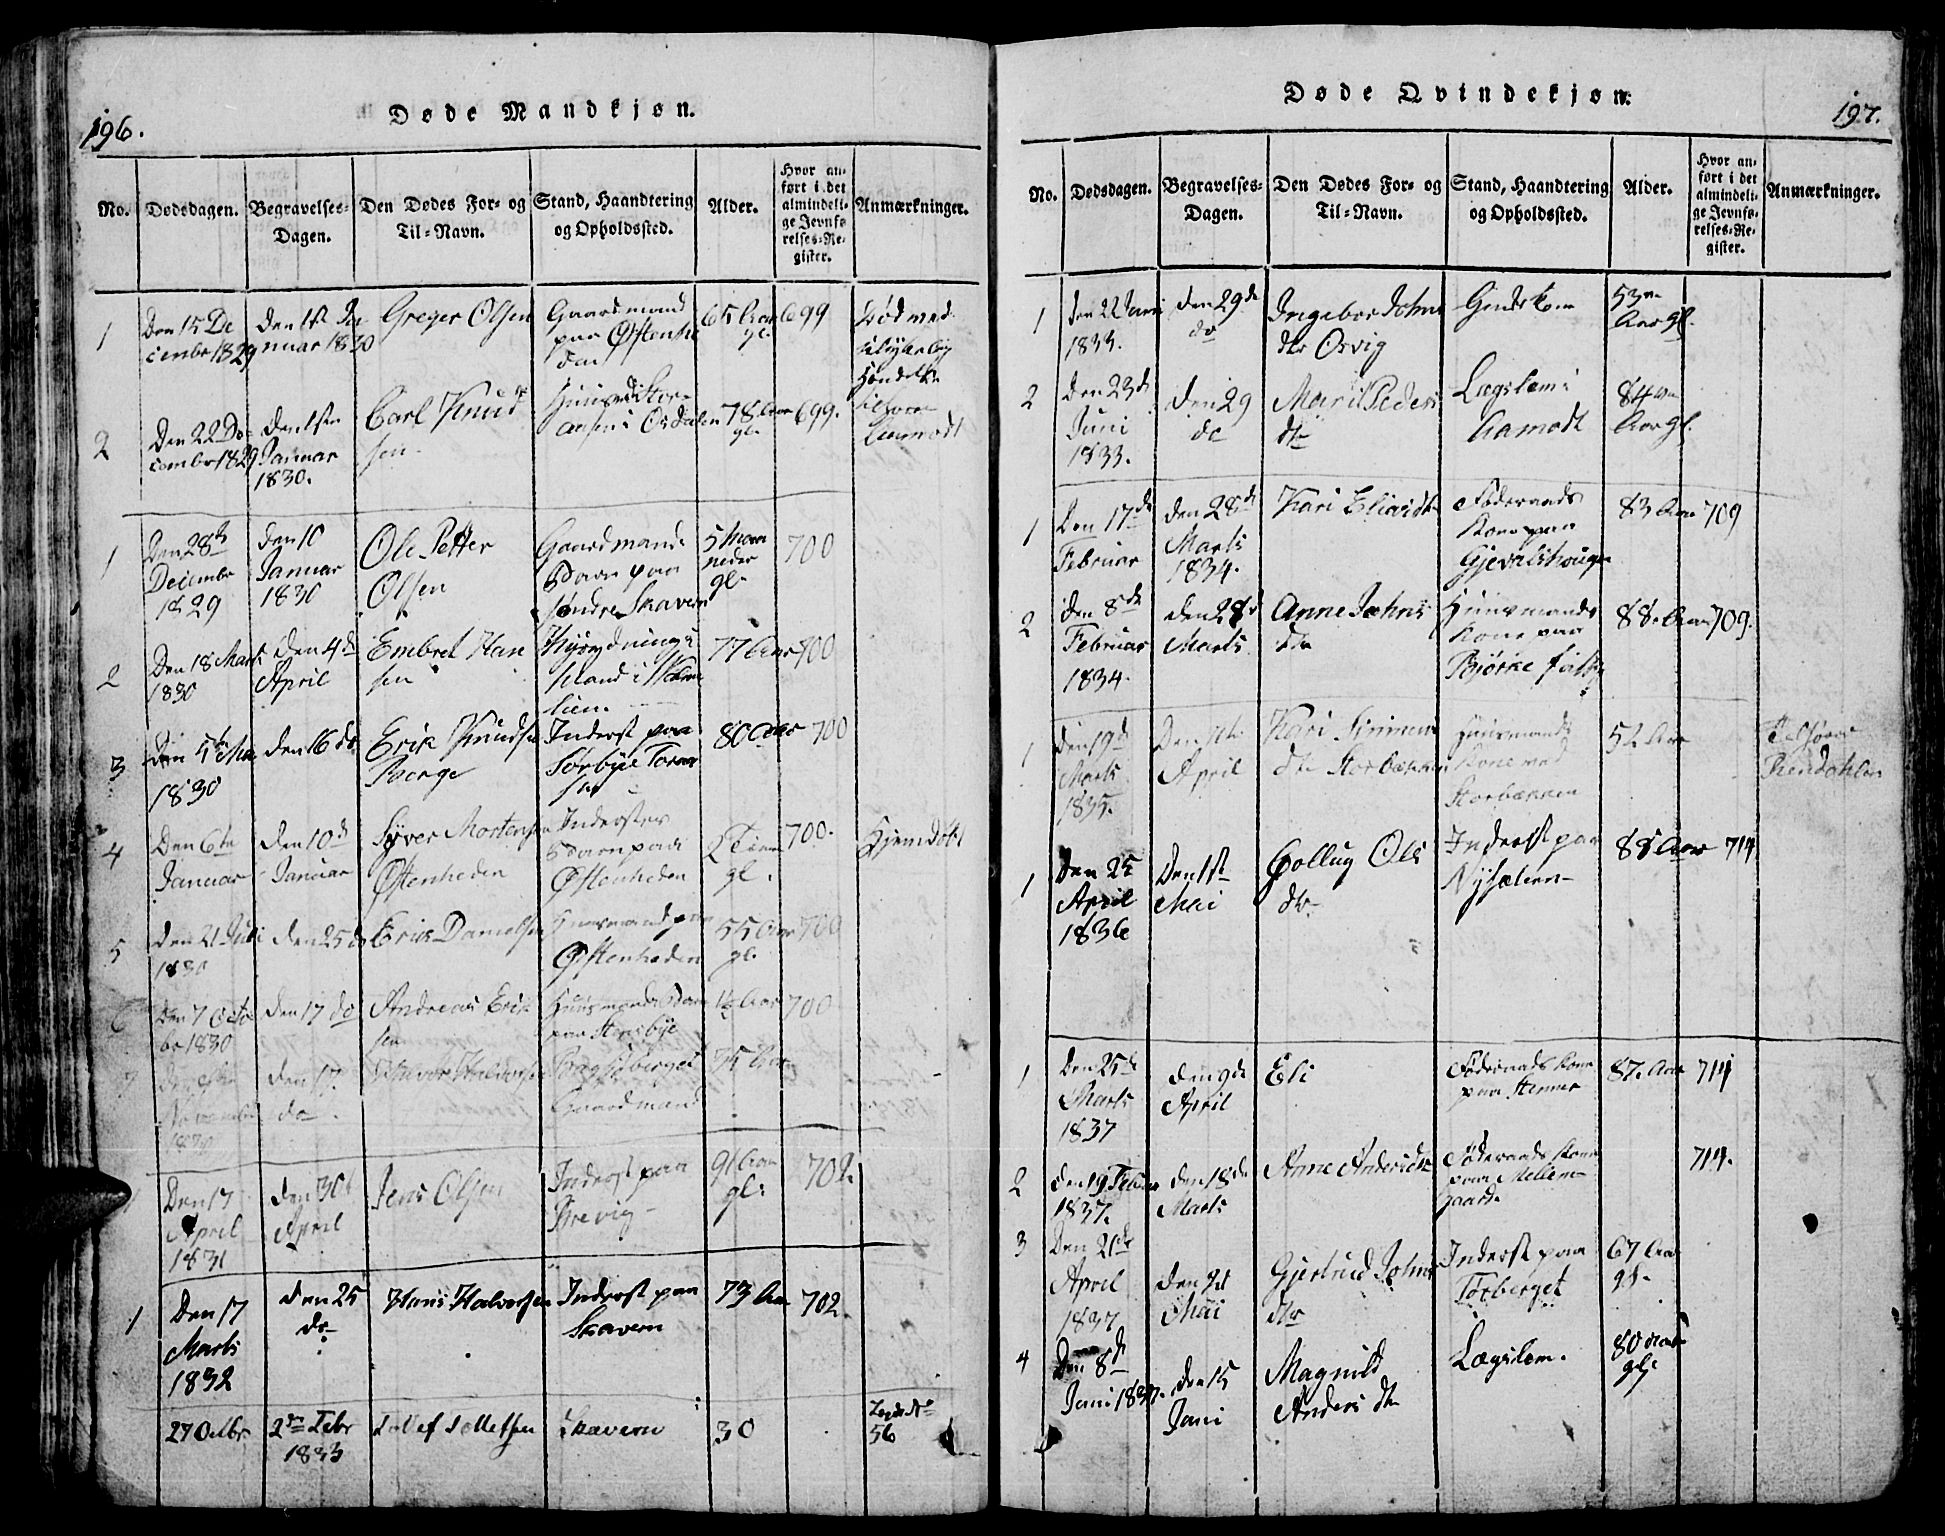 196.
Døde Mandkjøn.
No.
Dødsdagen.
Begravelses-
Dagen.
Den Dødes For- og
Til-Navn.
Stand, Haandtering
og Opholdssted.
Alder.
Hvor an-
ført i det
almindeli-
ge Jevnfø-
relses-Re-
gister.
Anmærkninger.
1
Den 15 De
cembr 1829
Den 1st Ja
nuar 1830
Greger Olsen
Gaardmand
paa Østenhe
den
65 Aar
gl.
699
Død med
2
Den 22 De
cembr 1829
Den 1ste
Januar
1830.
Carl Knud
sen
i Osdalen
78 Aar
gl.
699.
Aamodt
1
Den 28de
Decembr
1829
Den 10
Januar
1830
Ole Petter
Olsen
Gaardmands
Barn paa
Søndre Skavern
5 Maa
neder
gl.
700
2
Den 18 Marts
1830
Den 4de
April
Embret Han
sen
Rydnings
Mand i
lien.
77 Aar
700
3
Den 5te Mai
1830
Den 16 do
Erik Knudsen
Berge
Inderst paa
Sørbye
80 Aar
700
4
Den 6te
Januar
Den 10de
Januar
Syver Mortensen
Østenheden
Inderstes
Barn paa
Østenheden
gl.
700.
Hjemdøbt
5
Den 21 Juli
1830
Den 25 do
Erik Danielsen
Huusmand paa
Østenheden
55 Aar
gl.
700
6
Den 7 Octo
br 1830
Den 17 do
Andreas Erik
sen
Huusmands Barn
paa Stensbye
1½ Aar
700
7
Den
November
1830
Den 17
do.
Halvor Halvorsen
Gaardmand
75 Aar
1
Den 17
April
1831
Den 30t
April
Jens Olsen
Inderst paa
Brevig
91 Aar
gl.
702.
1
Den 17
Marts
1832
Den 25
do
Hans Halvorsen
Inderst paa
Skavern
73 Aar
702.
27 Octbr.
2den Febr
1833
Tollef Tollefsen
Skavern
30
56
197.
Døde Qvindekjøn.
No.
Dødsdagen.
Begravelses-
Dagen.
Den Dødes For- og
Til-Navn.
Stand, Haandtering
og Opholdssted.
Alder.
Hvor an-
ført i det
almindeli-
ge Jevnfø-
relses-Re-
gister.
Anmærkninger.
1
Den 22 Juni
1833.
Den 29de
do
Ingebor Johns
dtr Osvig
53
Aar gl.
2
Den 23de
Juni
1833.
Den 29
do
Marit Peders
dtr
Lægslem i
Aamodt
84
Aar gl.
1
Den 17de
Februar
Den 28de
Marts
1834.
Kari Eliasdtr
Føderaads
Kone paa
Gjevalshaugen
83 Aar
709
2
Den 8de
Februar
1834.
Den 28de
Marts
Anne Johns
dtr
Huusmands
Kone paa
Bjørke
88. Aar
709.
1
Den 19de
Marts
1835.
Den 5te
April
Kari Simens
dtr Storbækken
Huusmands
Kone ved
Storbækken
52 Aar
Rendahlen
1
Den 25
April
1836
Den 1st
Mai
Gollug Ols
dtr
Inderst paa
Nysæteren
88 Aar
714
1
Den 25de
Marts
1837
Den 9de
April
Eli
Føderaads Kone
paa Stenner
87. Aar
714
2
Den 19 Februar
1837.
Den 18de
Marts
Anne Andersdtr
Føderaads Kone
paa Mellem
gaard
714.
3
Den 21de
April
1837
Den 7de
Mai
Gjertrud Johns
dtr
Inderst paa
Torberget
67 Aar
gl.
4
Den 8de
Juni 1837.
Den 15
Juni
Magnild
Anders dtr
Lægslem.
80 Aar
gl.